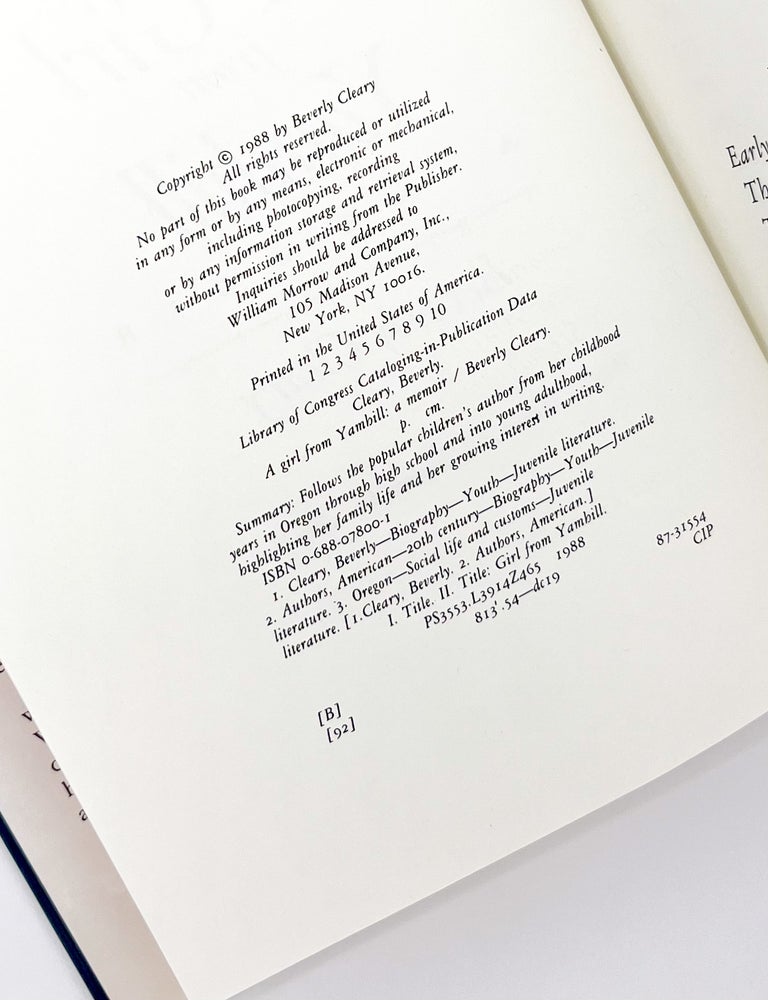 Copyright © 1988 by Beverly Cleary
All rights reserved.
No part of this book may be reproduced or utilized
in any form or by any means, electronic or mechanical,
including photocopying, recording
or by any information storage and retrieval system,
without permission in writing from the Publisher.
Inquiries should be addressed to
William Morrow and Company, Inc.,
105 Madison Avenue,
New York, NY 10016.
Printed in the United States of America.
1 2 3 4 5 6 7 8 9 10
Library of Congress Cataloging-in-Publication Data
Cleary, Beverly.
A girl from Yamhill: a memoir / Beverly Cleary.
p. cm.
Summary: Follows the popular children's author from her childhood
years in Oregon through high school and into young adulthood,
highlighting her family life and her growing interest in writing.
ISBN 0-688-07800-1
1. Cleary, Beverly—Biography—Youth—Juvenile literature.
2. Authors, American—20th century—Biography—Youth—Juvenile
literature. 3. Oregon—Social life and customs—Juvenile
literature. [1.Cleary, Beverly. 2. Authors, American.]
I. Title. II. Title: Girl from Yamhill.
PS3553.L3914Z465 1988
813'.54—dc19
87-31554
CIP
[B]
[92]
Early
Th